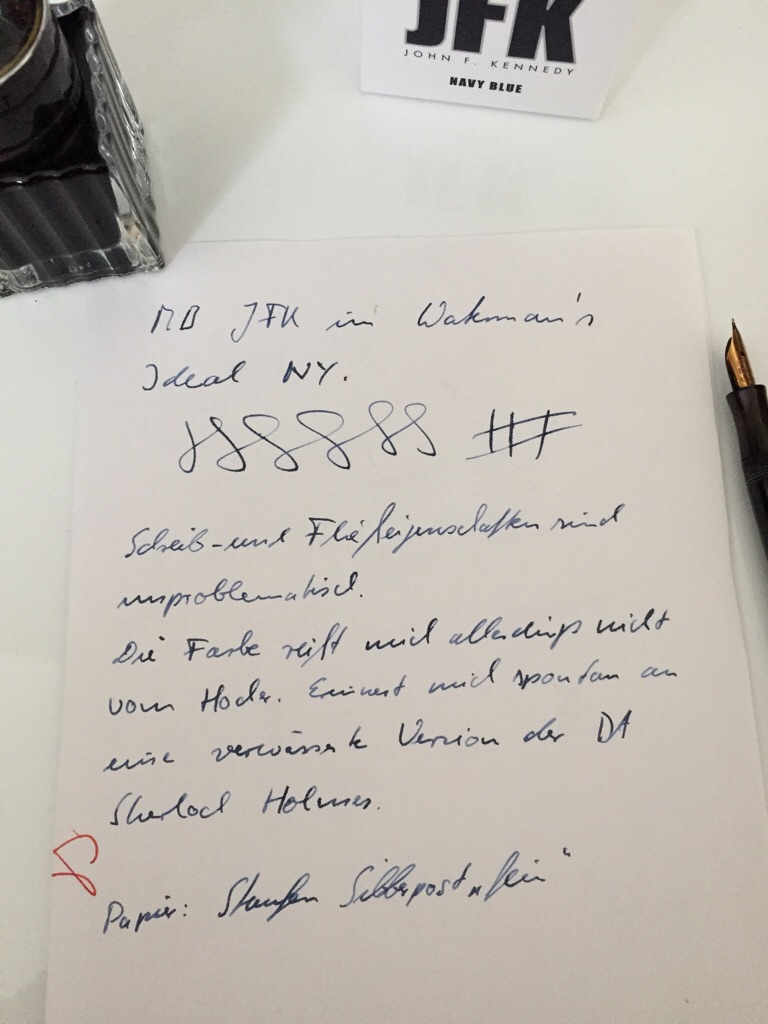 JFK
JOHN F. KENNEDY
NAVY BLUE
MB JFK in Waterman's
Ideal NY.
Schreib- und Fließeigenschaften sind
unproblematisch.
Die Farbe reißt mich allerdings nicht
vom Hocker. Erinnert mich spontan an
eine verwässerte Version der DA
Sherlock Holmes.
Papier: Staufen Silberpost „fein“